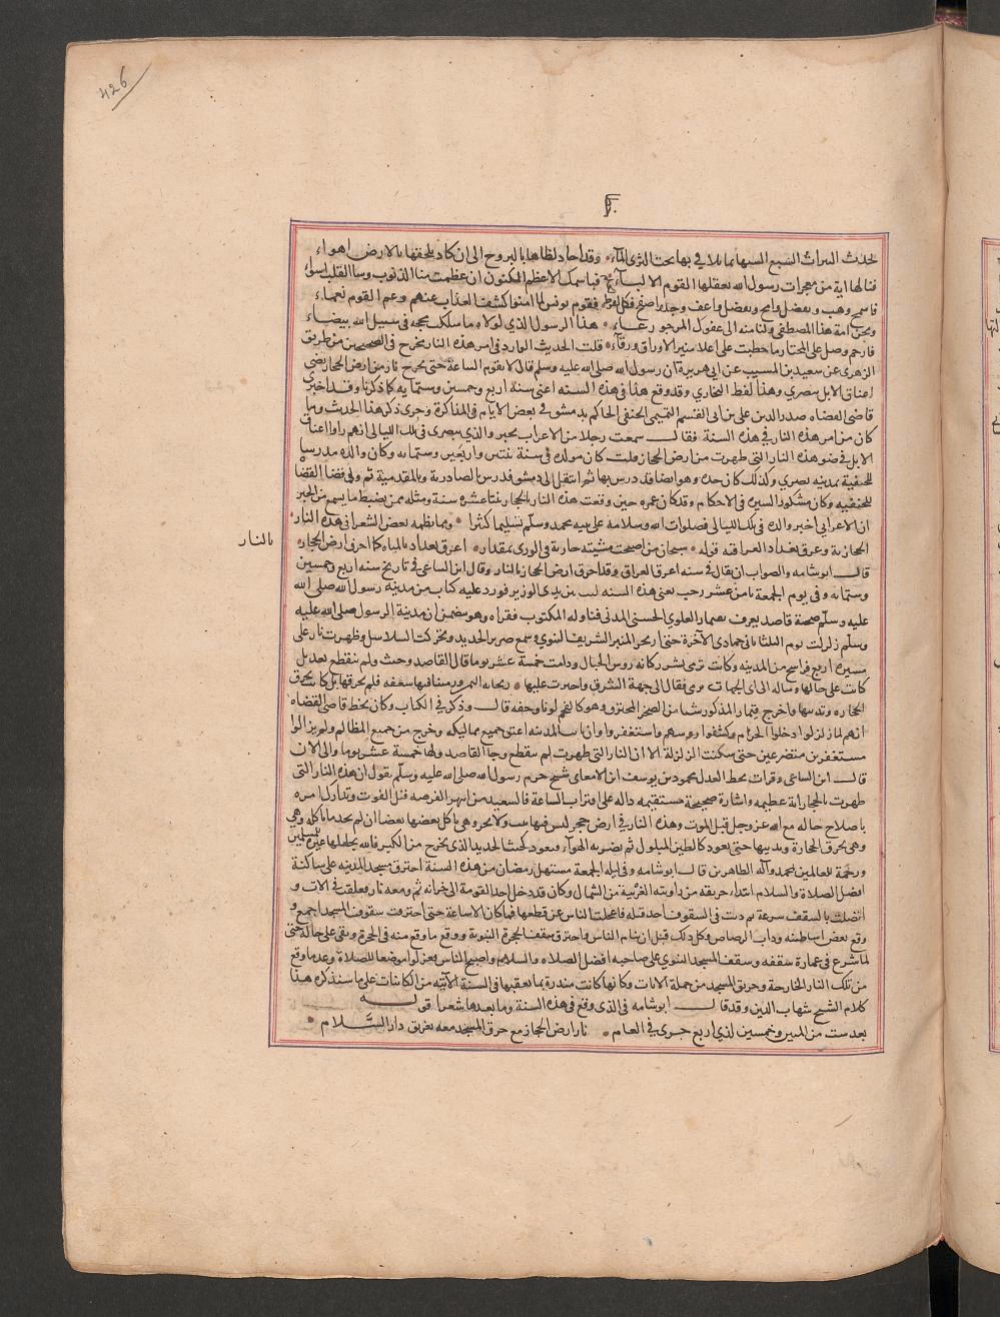 426
تحدث النيرات السبع السنها بما تلاقي بها تحت الثرى الماء وقد احاد لظاها بالبروج الى ان كاد يلحقها بالارض اهواء
فيا لها اية من معجزات رسول الله يعقلها القوم الالباء فباسمك الاعظم المكنون ان عظمت منا الذنوب وساء القلب اسواء
فاسمح وهب وتفضل وامح واعف وجد واصفح فكل فقوم يونس لما امنوا كشف العذاب عنهم وعم القوم نعماء
ونحن امة هذا المصطفى ولنا منه الى عفوك المرجو دعاء هذا الرسول الذي لولاه ما سلكت محجة في سبيل الله بيضاء
فارحم وصل على المختار ما خطبت على اعلا منبر الاوراق ورقاء قلت الحديث الوارد في امر هذه النار مخرج في الصحيحين من طريق
الزهري عن سعيد بن المسيب عن ابي هريرة ان رسول الله صلى الله عليه وسلم قال لا تقوم الساعة حتى تخرج نار من ارض الحجاز تضي
اعناق الابل ببصري وهذا لفظ البخاري وقد وقع هذا في هذه السنه اعني سنة اربع وخمسين وستمايه كما ذكرنا وقد اخبرني
قاضي القضاه صدر الدين علي بن ابي القسم التميمي الحنفي الحاكم بدمشق في بعض الايام في المذاكرة وجرى ذكر هذا الحديث وما
كان من امر هذه النار في هذه السنة فقال سمعت رجلا من الاعراب يخبر والدي ببصرى في تلك الليالي انهم راوا اعناق
الابل في ضو هذه النار التي ظهرت من ارض الحجاز قلت كان مولده في سنة ثنتين واربعين وستمايه وكان والده مدرسا
للحنفية بمدينه بصري وكذلك كان جده وهو ايضا قد درس بها ثم انتقل الى دمشق فدرس بالصادرية وبالمقدمية ثم ولي قضا القضاة
للحنفيه وكان مشكور السيرة في الاحكام وقد كان عمره حين وقعت هذه النار بالحجاز ثنتا عشره سنة ومثله ممن يضبط ما يسمع من الخبر
ان الاعرابي اخبر والده في تلك الليالي فصلوات الله وسلامه على نبيه محمد وسلم تسليما كثيرا ومما نظمه بعض الشعرا في هذه النار
الحجازية وغرق بغداد قوله سبحان من اصبحت مشيئته جارية في الورى بمقدار اغرق بغداد بالمياه كما احرق ارض الحجاز
بالنار
قال ابو شامه والصواب ان يقال في سنه اغرق العراق وقد احرق ارض الحجاز بالنار وقال ابن الساعي في تاريخ سنه اربع وخمسين
وستمايه وفي يوم الجمعة ثامن عشر رجب يعني هذه السنه كنت بين يدي الوزير فورد عليه كتاب من مدينة رسول الله صلى الله
عليه وسلم صحبة قاصد يعرف بقيماز العلوي الحسني المدني فناوله المكتوب فقراه وهو يتضمن ان مدينة الرسول صلى الله عليه
وسلم زلزلت يوم الثلثا ثاني جمادى الآخرة حتى ارتج المنبر الشريف النبوي وسمع صرير الحديد وتحركت السلاسل وظهرت نار على
مسيرة اربع فراسخ من المدينه وكانت ترمي بشرر كانه روس الجبال ودامت خمسة عشر يوما قال القاصد وجئت ولم تنقطع بعد بل
كانت على حالها وساله الى اي الجهات ترمي فقال الى جهة الشرق واجتزت عليها ورمينا فيها سعفه فلم تحرقها بل كانت تحرق
الحجاره وتذيبها واخرج قيماز المذكور شيا من الصخر المحترق وهو كالفحم لونا وخفه قال وذكر في الكتاب وكان بخط قاضي القضاه
انهم لما زلزلوا دخلوا الحرم وكشفوا روسهم واستغفروا وان نايب المدينه اعتق جميع مماليكه وخرج من جميع المظالم ولم يزالوا
مستغفرين متضرعين حتى سكنت الزلزلة الا ان النار التي ظهرت لم تنقطع وجا القاصد ولها خمسة عشر يوما والى الان
قال ابن الساعي وقرات بخط العدل محمود بن يوسف ابن الامعاني شيخ حرم رسول الله صلى الله عليه وسلم يقول ان هذه النار التي
ظهرت بالحجاز اية عظيمه واشارة صحيحة مستقيمه داله على اقتراب الساعة فالسعيد من انتهز الفرصه قبل الفوت وتدارك امره
باصلاح حاله مع الله عز وجل قبل الموت وهذه النار في ارض حجر ليس فيها نبت ولا شجر وهي تاكل بعضها بعضا ان لم تجد ما تاكله وهي
وهي تحرق الحجارة وتذيبها حتى تعود كالطين المبلول ثم يضربه الهواء ويعود كخبث الحديد الذي يخرج من الكير فالله يجعلها عبرة للمسلمين
ورحمة للعالمين بمحمد وآله الطاهرين قال ابو شامه وفي ليله الجمعة مستهل رمضان من هذه السنة احترق مسجد المدينه على ساكنه
افضل الصلاة والسلام ابتداء حريقه من زاويته الغربية من الشمال وكان قد دخل احد القومة الى خزانه ثم ومعه نار فعلقت في الالات و
اتصلت بالسقف سرعة ثم دبت في السقوف اخذ قبله فاعجلت الناس عن قطعها فما كان الا ساعة حتى احترقت سقوف المسجد اجمع و
وقع بعض اساطينه وذاب الرصاص وكل ذلك قبل ان ينام الناس واحترق سقف الحجرة النبوية ووقع ما وقع منه في الحجرة وبقي على حاله حتى
لما شرع في عمارة سقفه وسقف المسجد النبوي على صاحبه افضل الصلاه والسلام واصبح الناس فعزلوا موضعا للصلاة وعد ما وقع
من تلك النار الخارجة وحريق المسجد من جملة الايات وكانها كانت منذرة بما يعقبها في السنة الآتية من الكاينات على ما سنذكره هذا
كلام الشيخ شهاب الدين وقد قال ابو شامه في الذي وقع في هذه السنة وما بعدها شعرا قوله
بعد ست من المئين وخمسين لدى اربع جرى في العام نار ارض الحجاز مع حرق المسجد معه تغريق دار السلام